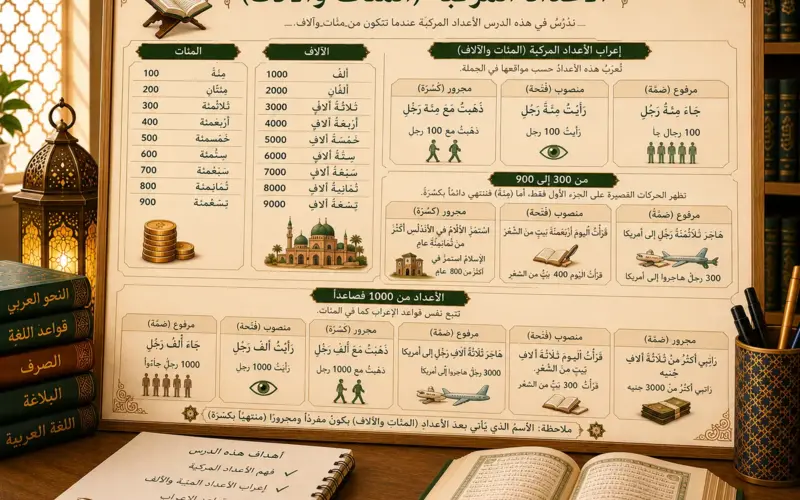 الأعداد المركبة (المئات والآلاف)
نَدْرُسُ في هذه الدرس الأعداد المركبة عندما تتكون من مئات وآلاف.
المئات
100 مِئَةٌ
200 مِئَتَانِ
300 ثَلَاثُمئة
400 أَرْبَعُمئة
500 خَمْسُمئة
600 سِتُّمئة
700 سَبْعُمئة
800 ثَمَانِمئة
900 تِسْعُمئة
الآلاف
1000 أَلْفٌ
2000 أَلْفَانِ
3000 ثَلَاثَةُ آلَافٍ
4000 أَرْبَعَةُ آلَافٍ
5000 خَمْسَةُ آلَافٍ
6000 سِتَّةُ آلَافٍ
7000 سَبْعَةُ آلَافٍ
8000 ثَمَانِيَةُ آلَافٍ
9000 تِسْعَةُ آلَافٍ
إعراب الأعداد المركبة (المئات والآلاف)
تُعرَبُ هذه الأعدادُ حسب مواقعها في الجملة.
مرفوع (ضمّة)
جَاءَ مِئَةُ رَجُلٍ
100 رجال جا
منصوب (فتحة)
رَأَيْتُ مِئَةَ رَجُلٍ
رَأيتُ 100 رجل
مجرور (كَسْرَة)
ذَهَبْتُ مَعَ مِئَةِ رَجُلٍ
ذهبتُ مع 100 رجل
من 300 إلى 900
تظهر الحركات القصيرة على الجزء الأول فقط، أما (مِئَة) فتنتهي دائماً بكَسْرَة.
مرفوع (ضمّة)
هَاجَرَ ثَلَاثُمِئَةِ رَجُلٍ إلى أمريكا
300 رجل هاجروا إلى أمريكا
منصوب (فَتْحَة)
قَرَأْتُ الْيَومَ أَرْبَعَمِئَةِ بَيتٍ مِنَ الشِّعْرِ
قَرَأْتُ اليَوْم 400 بَيْتٍ من الشعر
مجرور (كَسْرَة)
اسْتَمَرَّ الْإسْلَامُ في الأَنْدَلُسِ أَكْثَرَ
مِنْ ثَمَانِمِئَةِ عَامٍ
الإسلام استمرّ في
أكثر من 800 عامٍ
الأعداد من 1000 فصاعداً
تتبع نفس قواعد الإعراب كما في المئات.
مرفوع (ضمّة)
جَاءَ أَلْفُ رَجُلٍ
1000 رجلٍ جاءوا
منصوب (فَتْحَة)
رَأَيْتُ أَلْفَ رَجُلٍ
رَأيْتُ 1000 رجل
مجرور (كَسْرَة)
ذَهَبْتُ مَعَ أَلْفِ رَجُلٍ
ذهبتُ مع 1000 رجل
مرفوع (ضمّة)
هَاجَرَ ثَلَاثَةُ آلَافِ رَجُلٍ إلى أمريكا
3000 رجلٍ هاجروا إلى أمريكا
منصوب (فَتْحَة)
قَرَأْتُ الْيَومَ ثَلَاثَةَ آلَافِ
بَيْتٍ مِنَ الشِّعْرِ.
قَرَأْتُ 300 بَيْتٍ مِنَ الشعر
مجرور (ضمّة)
رَاتِبي أَكْثَرُ مِنْ ثَلَاثَةِ آلَافِ
جُنيه
راتبي أَكْثَرُ من 3000 جنيه
ملاحظة: الأسمُ الذي يَأتي بعدَ الأعدادِ (المئات والآلاف) يكونُ مفرداً ومجرورًا (منتهياً بكسرة)
النحو العربي
قواعد اللغة
الصرف
البلاغة
اللغة العربية
أهداف هذه الدرس
فهم الأعداد المركبة ✓
إعراب الأعداد المئية والألف ✓
الإعراب